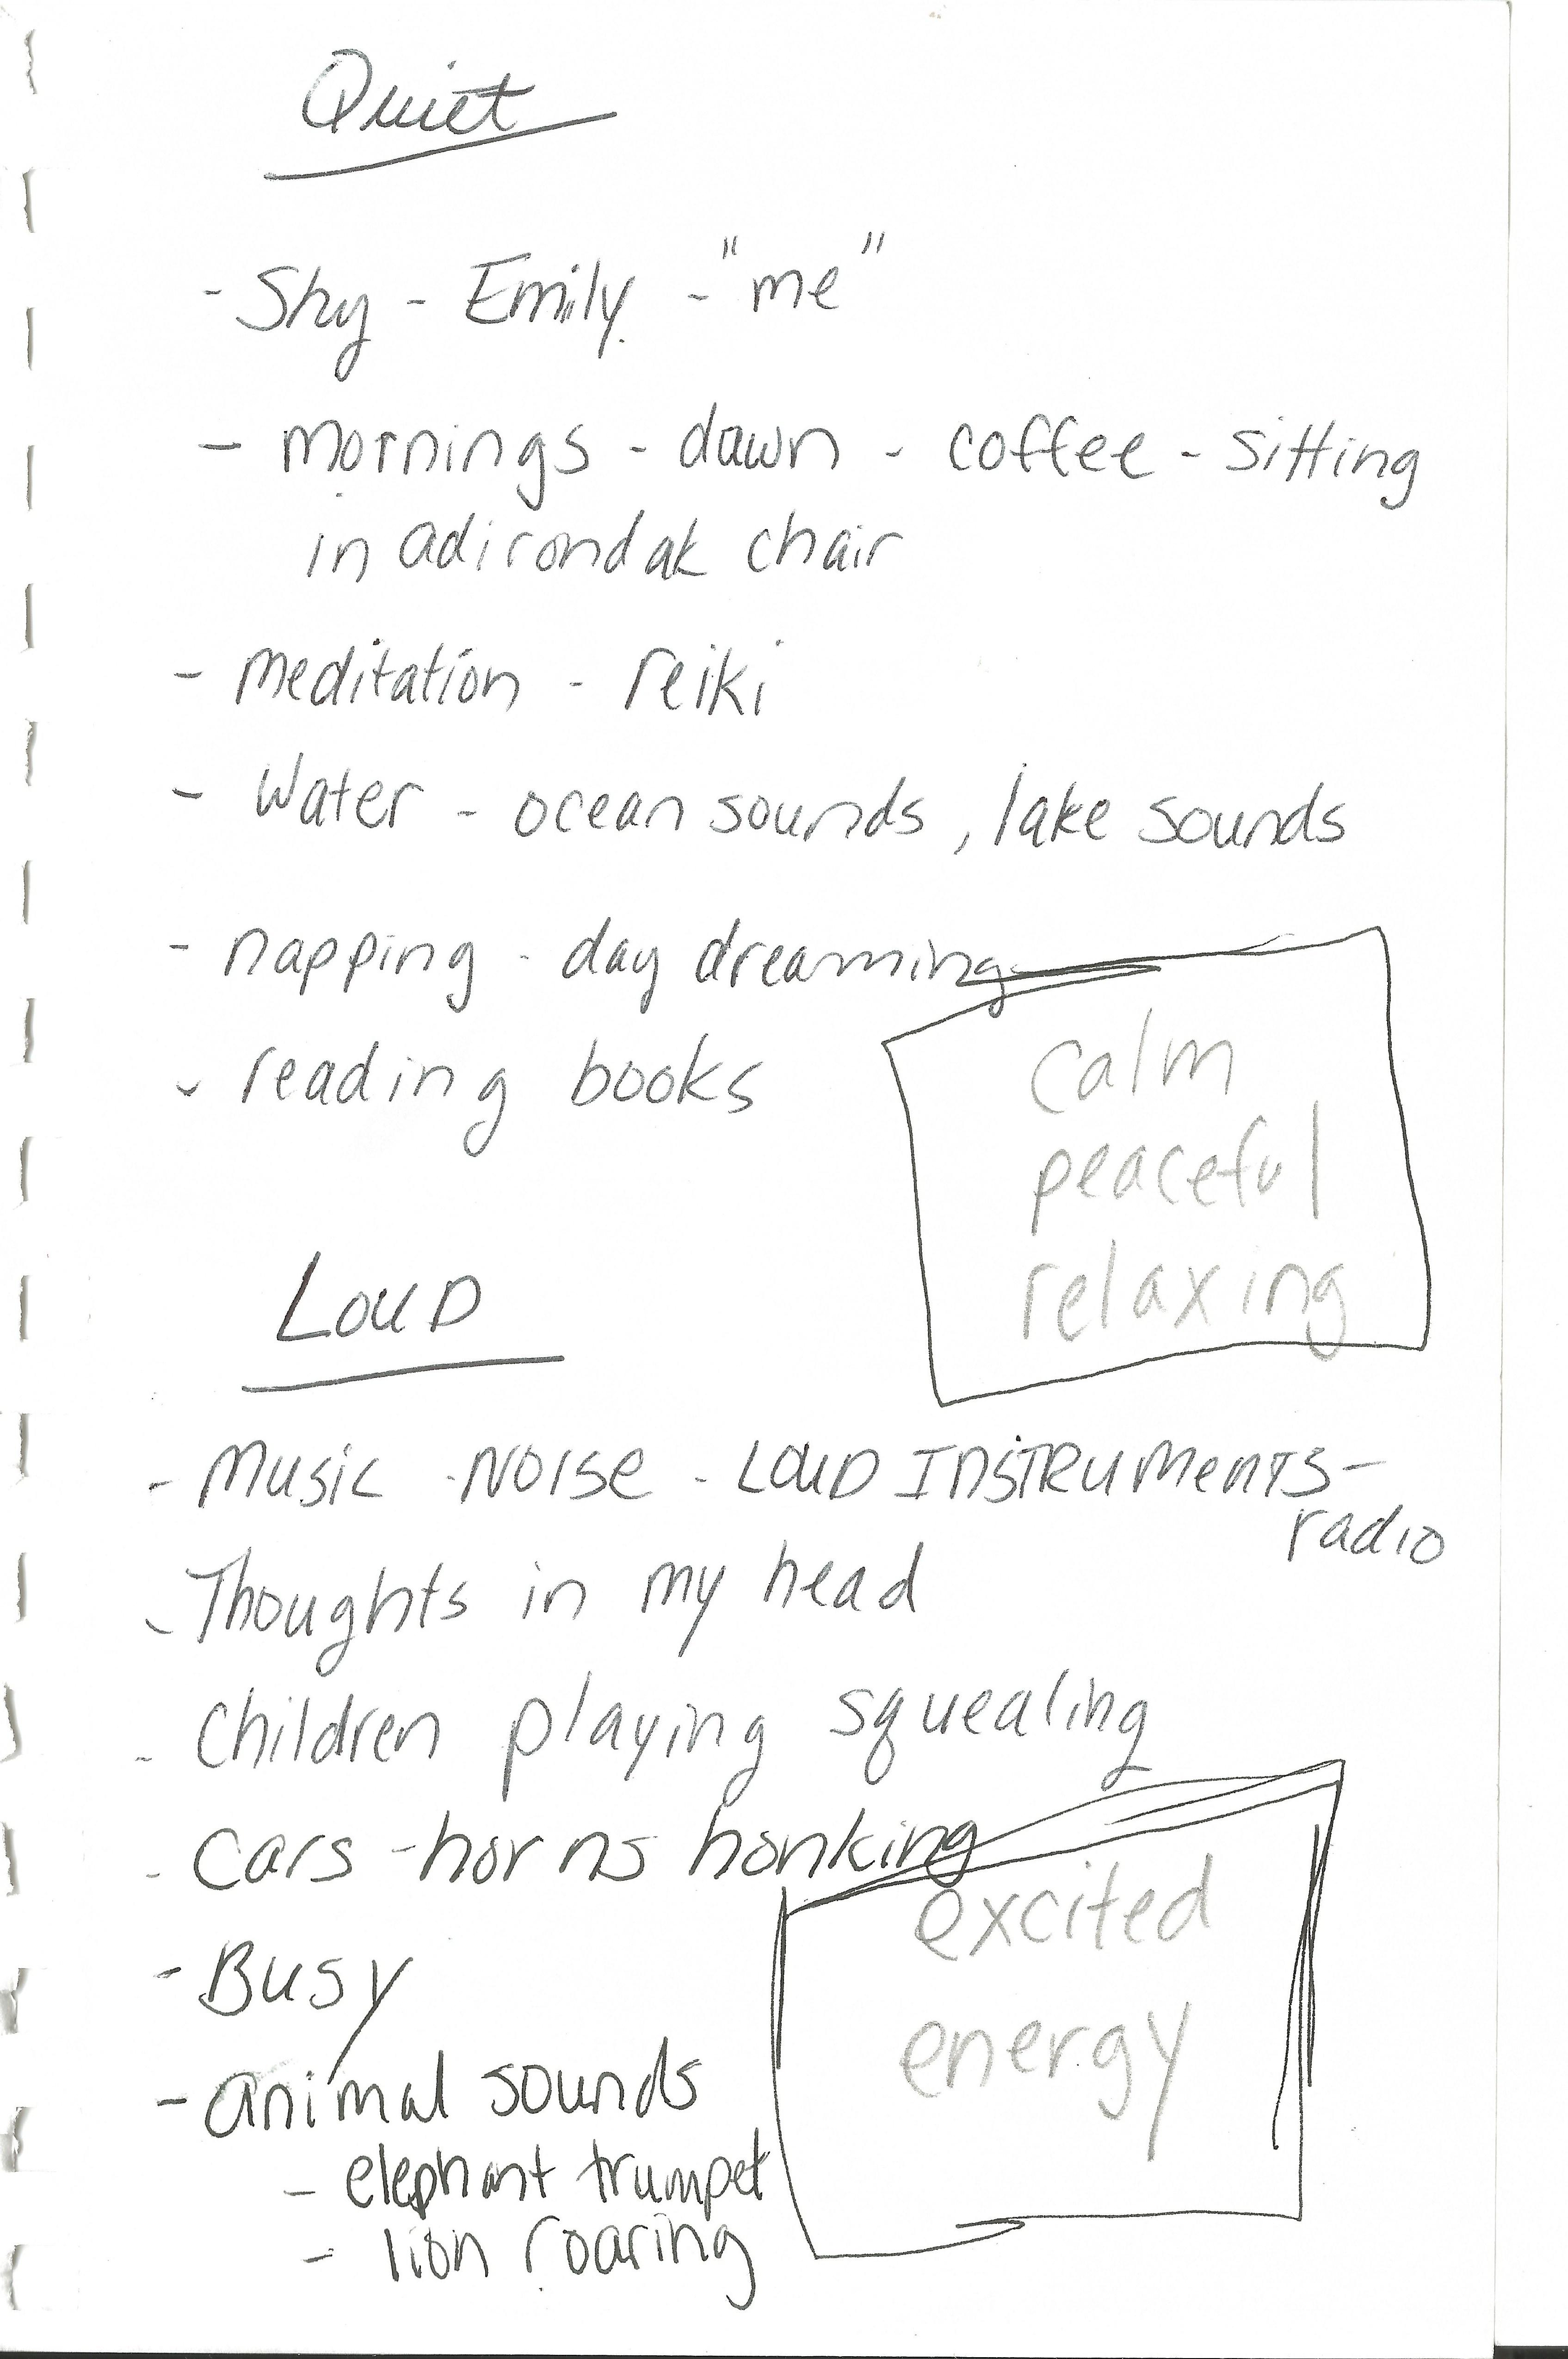 Quiet
- Shy - Emily - "me"
- mornings - dawn - coffee - sitting
in adirondak chair
- meditation - reiki
- Water - ocean sounds, lake sounds
- napping - day dreaming
- reading books
calm
peaceful
relaxing
LOUD
- MUSIC - NOISE - LOUD INSTRUMENTS -
radio
- Thoughts in my head
- children playing squealing
- cars - horns honking
- Busy
- animal sounds
- elephant trumpet
- lion roaring
excited
energy